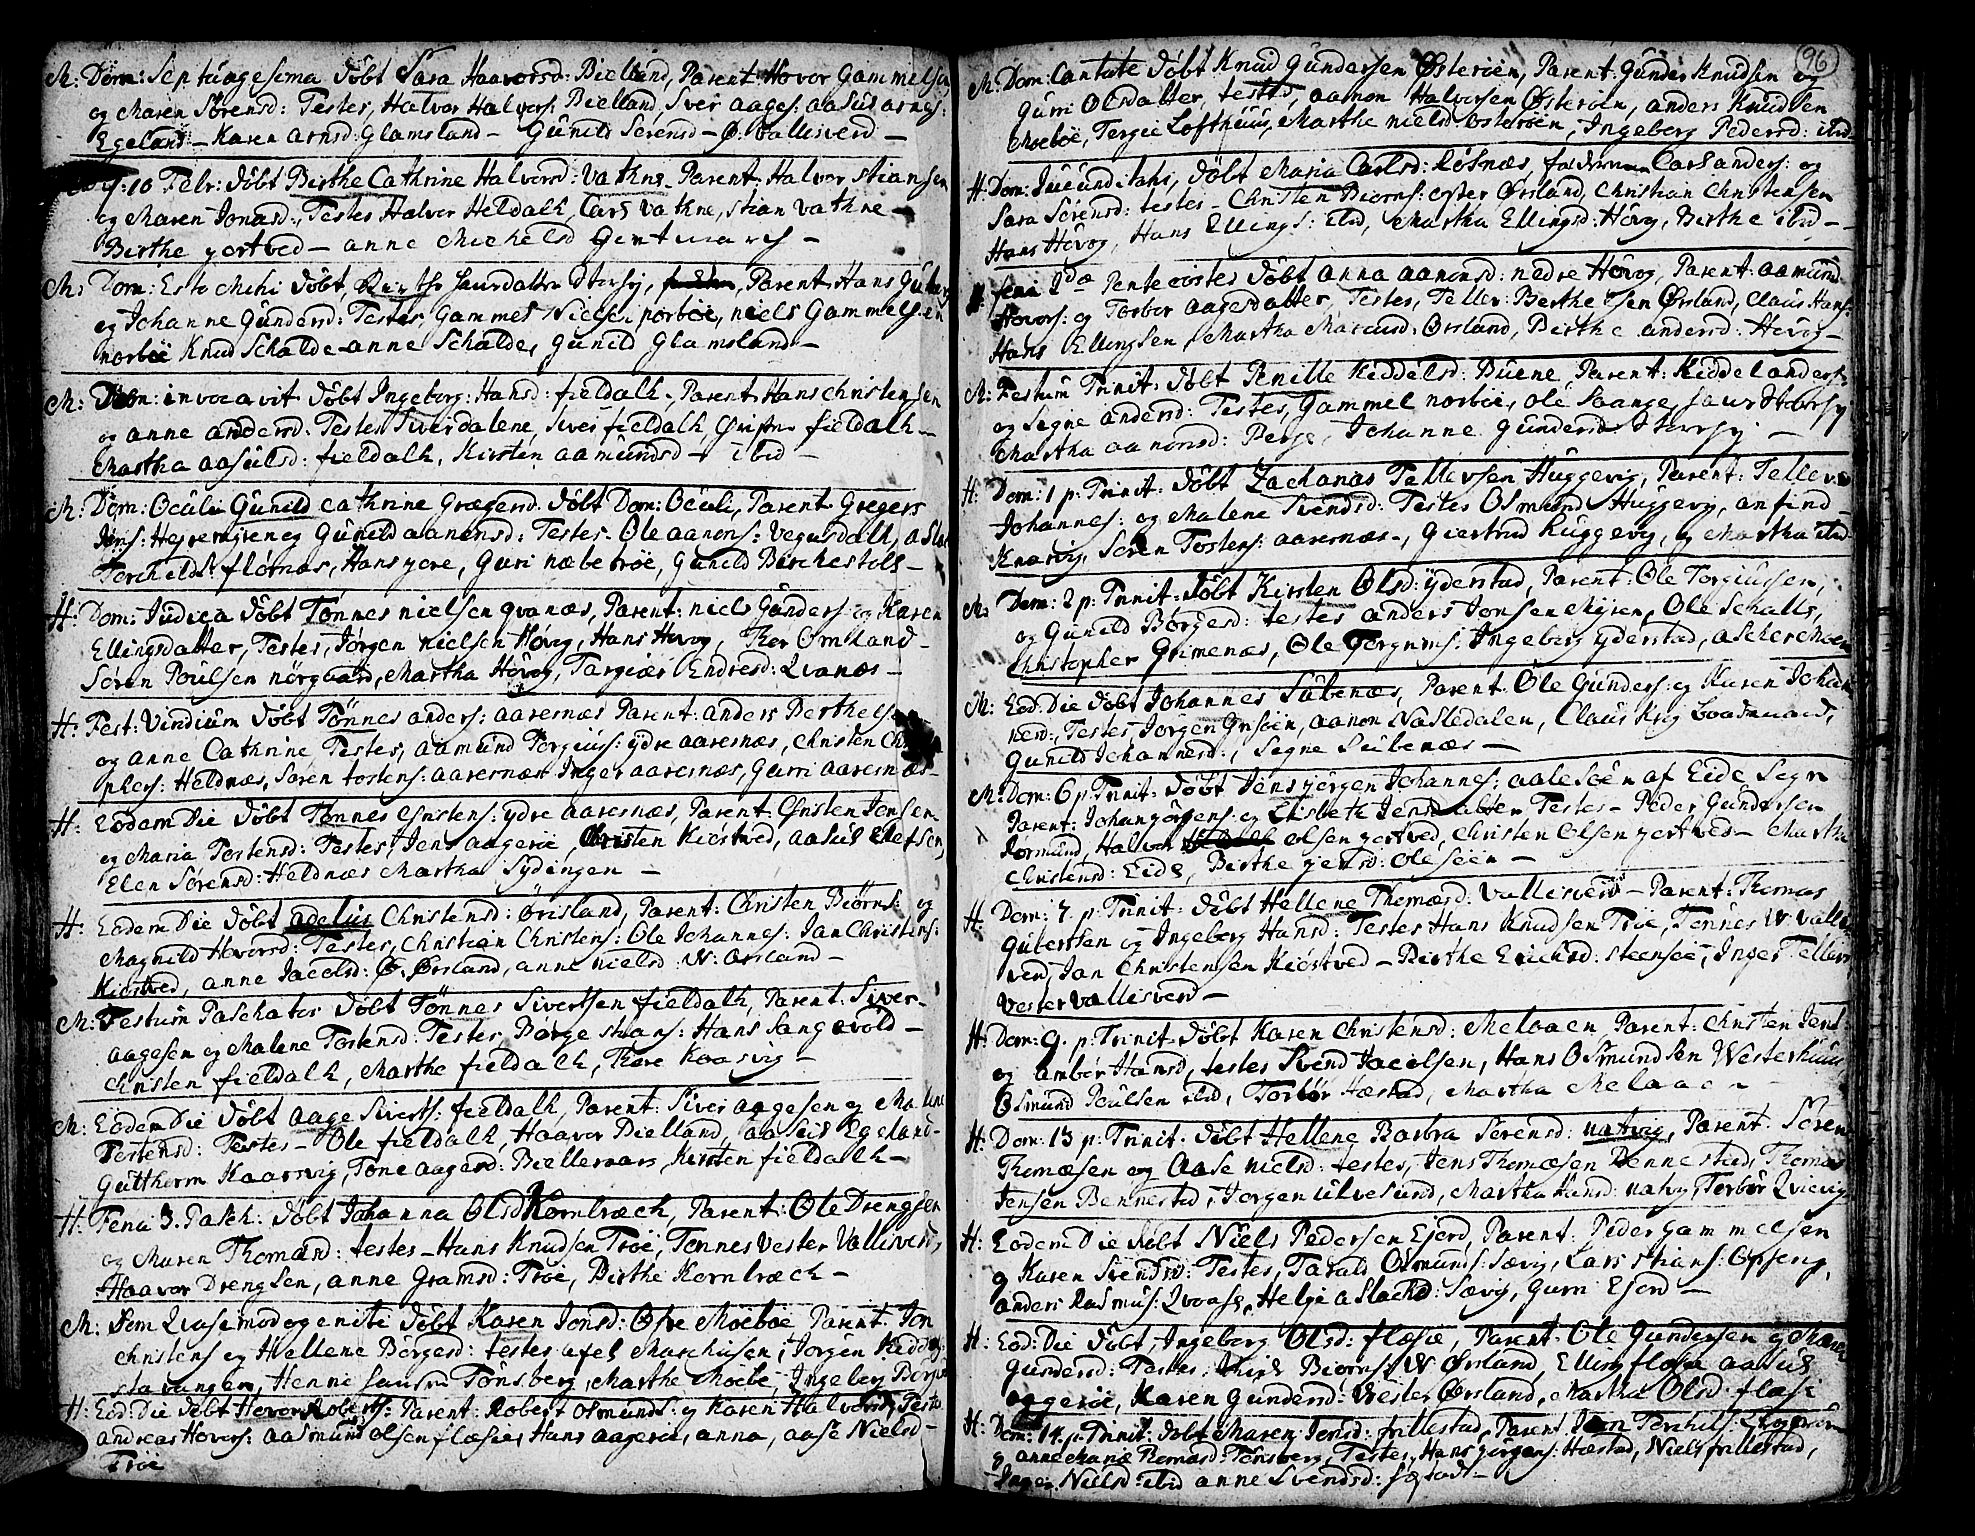 M: Dom: Septuagesima døbt Sara Haavorsd: Bielland, Parent Hovor Gammelsen
og Maren Sørensd: Testes, Halvor Halvors: Bielland, Siver aages: aasul arnes:
Egeland – Karen arnsd: Glamsland – Gunild Sørensd – Ø. Vallisverd –
d: 10 Febr: døbt Birthe Cathrine Halvorsd: Vathne – Parent Halvor Stiansen
og Maren Jonasd:, Testes Halvor Heldalh, Lars Vathne, Stian Vathne –
Birthe yertved – anne Michelsd
M: Dom: Esto Mihi døbt, Storsy, Parent: Hans
og Johanne Gundersd: Testes, Gammel Nielsen norbøe, niels Gammelsen
norbøe Knud Schalde – anne Schalde, Gunild Glamsland –
M: Dom: invocavit døbt Ingeborg: Hansd: fieldalh, Parent: Hans Christensen
og anne andersd: Testes Siverdalene, Siver fieldalh, fieldalh –
Martha aasulsd: fieldalh, Kirsten aamundsd – ibid –
M: Dom: Oculi Gunild Cathrine Grægersd døbt Dom: Oculi, Parent Gregers
Jens: og Gunild aanensd: Testes – Ole aanons: Vegusdalh, aslac
Torchelds: flørnas, Hans ycre, Guri næbetrøe, Gunild Birchestols –
H: Dom: Judica døbt Tønnes nielsen qvanæs, Parent: niels Gunders: og Karen
Ellingsdatter, Testes, Jørgen nielsen Høvog, Hans Høvog, Omland –
Søren Poulsen nørgaard, Martha Høvog, Targier Endresd: Qvanæs –
H: Fest: Viridium døbt Tønnes anders: aaresnæs Parent: anders Berthels:
og anne Cathrine, Testes, aamund Torgius: ydre aaresnæs, Christen
phers: Heldnæs, Søren tostens: aaresnæs Inger aaresnæs, Gurri aaresnæs –
H: Eodem Die døbt Tønnes Christens: ydre aaresnæs, Parent: Christen Jensen
og Maria Tostensd: Testes, Jens aagerøe, Christen Kiøstved, aasul Eletsen,
Elen Sørensd: Heldnæs Martha Sydingen –
H: Eodem Die døbt adelus Christensd: ørisland, Parent: Christen Biørns: og
Magnild Hovorsd: Testes, Christian Christens: Ole Johannes: Jan Christens:
Kiøstved, anne Jacobsd: Ø. Ørsland, anne nielsd: W: Ørsland –
M: Festum Paschatos døbt Tønnes Sivertsen fieldalh, Parent: Siver
aagesen og Malene Tostensd: Testes, Børge Hans Langevold –
Christen fieldalh, Marthe fieldalh, There Kaasvig –
M: Eodem Die døbt aage Siverts: fieldalh, Parent: Siver aagesen og Malene
Tostensd: Testes – Ole fieldalh, Haavor Bielland, aasul Egeland –
Gutthorm Kaasvig, Tone aagesd: Biellevars, Kirsten fieldalh –
H: Feria 3. Pasch: døbt Johanna Olsd Kornbræch, Parent: Ole Drengsen
og Maren Thomasd: testes – Hans Knudsen Trøe, Tønnes Vester Vallisverd,
Haavor Drengsen, anne Gramsd: Trøe, Birthe Kornbræch –
M: Dom Qvasimodogeniti døbt Karen Jonsd: Øvre Moebøe Parent: Jon
Christens og Hellene Børgesd: testes afel Marchusen, Jørgen
stavanger, Henne Tønsberg, Marthe Moebø, Ingeborg
H: Eod: Die døbt Hovor Roberts: Parent: Robert Osmunds: og Karen Halvorsd, Testes
andreas Hovors: aasmund olsen flæsie, Hans aagerøe, anna, aase Nielsd –
Trøe
96
M: Dom: Cantate døbt Knud Gundersen Østerøen, Parent: Gunder Knudsen og
Gurri Olsdatter, testes, aanon Halvorsen Østerøen, anders Knudsen
Moebøe, Tergie Lofthuus, Marthe nielsd Østerøen, Ingeborg Pedersd: ibid
H: Dom: Jucunditatis, døbt Maria Carlsd: Røsnæs, Carl anders: og
Sara Sørensd: testes – Christen Biørns: øster Ørsland, Christian Christensen
Hans Høvog, Hans Ellings: ibid, Martha Ellingsd: Høvog, Birthe ibid –
H: feria 2da Pentecostes døbt anna aanonsd: nedre Høvog, Parent: aamund
Hovors: og Torbor aagesdatter, Testes, Tellev: Berthelsen Ørsland, Claus Hans:
Hans Ellingsen, Martha Marcusd: Ørsland, Birthe andersd: Høvog –
M: Festum Trinit: døbt Pernille Kiddelsd: Buene, Parent: Kiddel anders:
og Segne andersd: Testes, Gammel norbøe, Ole Saange, Storsy
Martha aanonsd: Berge, Johanne Gundersd Storsy –
H: Dom: 1 p: Trinit: døbt Zacharias Tellevsen Huggevig, Parent: Tellev
Johannes: og Malene Svendsd: Testes Osmund Huggevig, anfind
Knarvig, Søren Tostens: aaresnæs –, Giertrud Huggevig, og Martha ibid
M: Dom: 2 p: Trinit: døbt Kirsten Olsd: yderstad, Parent: Ole Torgiussen,
og Gunild Børgesd: testes anders Jonsen Myren, Ole Schalls,
Christopher Grimenæs, Ole Torgrims: Ingeborg yderstad,
M: Eod: Die døbt Johannes Subenæs, Parent: Ole Gunders: og Karen Johan
nesd:, Testes, Jørgen Grisøen, aanon Naskedalen, Claus Krig
Gunild Johannesd:, Segne Subenæs –
M: Dom: 6 p: Trinit: døbt Jens yørgen Johannes: aalesøen af Eide Sogn
Parent: Johan yørgens: og Elisbeth Jensdatter, Testes – Peder Gundersen
Kormund, Halvor olsen yertved, Christen Olsen yertved – Marthe
Christensd: Eide, Birthe yensd: Olesøen –
H: Dom: 7. p: Trinit: døbt Hellene Thomæsd: Vallisverd – Parent: Thomas
Gulbertsen og Ingeborg Hansd: Testes Hans Knudsen Trøe, Tønnes W: Vallis
verd, Jan Christensen Kiøstved – Birthe Erichsd: Steensøe, Inger Tellevs
Vester Vallisverd –
H: Dom: 9. p: Trinit: døbt Karen Christensd: Melaaen, Parent: Christen Jens
og ambør Hansd, testes Svend Jacobsen, Hans Osmundsen Westerhuus
Osmund Poulsen ibid, Torbør Hæstad, Martha Melaaen –
H: Dom: 13 p: Trinit: døbt Hellene Barbra Sørensd: natvig, Parent: Søren
Thomæsen og Aase nielsd: testes, Jens Thomæsen Bennestad, Thomas
Jensen Bennestad, Jørgen Ulvesund, Martha Hansd: natvig, Torbør Qvievig
H: Eodem Die døbt Niels Pedersen Ejord, Parent: Peder gammelsen
og Karen Svendsd: Testes, Tarald Osmunds: Sævig, Lars Stians: Opseng,
anders Rasmus: Qvaase, Helje aslachsd: Sævig, Gurri Ejord –
H: Eod: Die døbt, Ingeborg Olsd: flæsie, Parent: Ole Gundersen og Maren
Gundersd: Testes, Biørns: W Ørsland, Elling flæsie aasul
aagerøe, Karen Gundersd: Wester Ørsland, Martha Olsd: flæsie
H: Dom: 14. p: Trinit: døbt Maren Jonsd: frillestad, Parent: Jon Torchils:
og anne Marie Thomasd: Tønsberg, Testes, Hans yørgens: Hæstad, Niels frillestad,
Inger Nielsd: ibid anne Svendsd: –